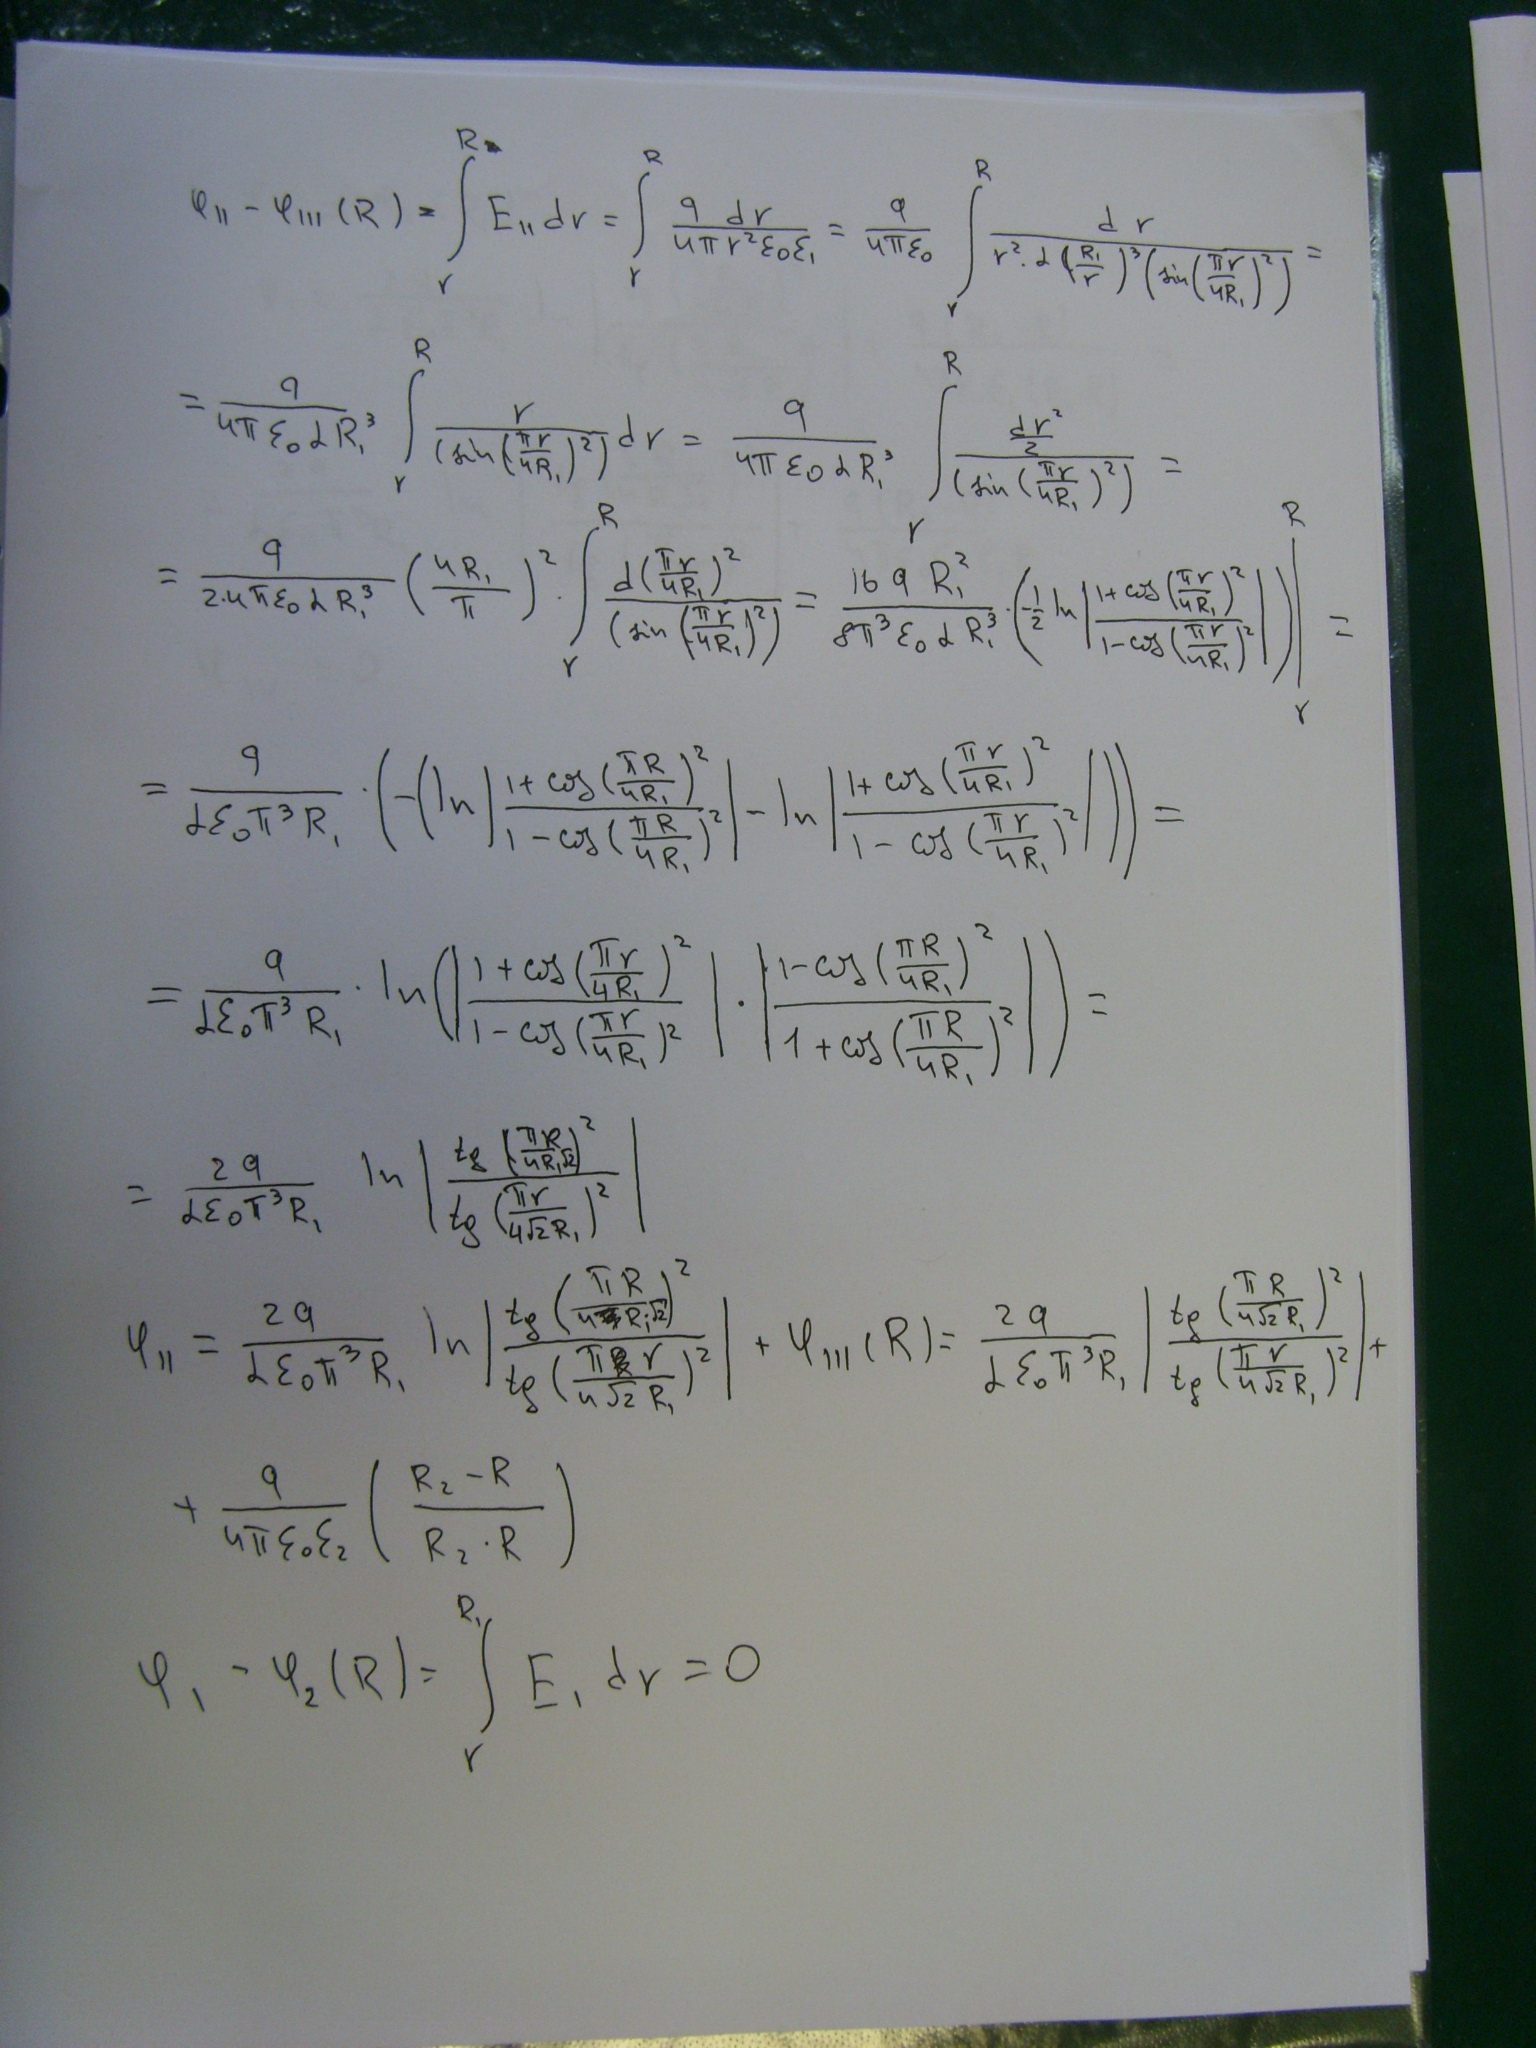 φ_II − φ_III (R) = ∫_r^R E_II dr = ∫_r^R (q dr)/(4π r² ε₀ε₁) = q/(4πε₀) ∫_r^R dr/(r²·α(R₁/r)³(sin(πr/4R₁)²)) =
= q/(4πε₀αR₁³) ∫_r^R r/(sin(πr/4R₁)²) dr = q/(4πε₀αR₁³) ∫_r^R (dr²/2)/(sin(πr/4R₁)²) =
= q/(2·4πε₀αR₁³) (4R₁/π)² · ∫_r^R d(πr/4R₁)²/(sin(πr/4R₁)²) = 16qR₁²/(8π³ε₀αR₁³) · (−1/2 ln|(1+cos(πr/4R₁)²)/(1−cos(πr/4R₁)²)|)|_r^R =
= q/(αε₀π³R₁) · (−(ln|(1+cos(πR/4R₁)²)/(1−cos(πR/4R₁)²)| − ln|(1+cos(πr/4R₁)²)/(1−cos(πr/4R₁)²)|)) =
= q/(αε₀π³R₁) · ln(|(1+cos(πr/4R₁)²)/(1−cos(πr/4R₁)²)| · |(1−cos(πR/4R₁)²)/(1+cos(πR/4R₁)²)|) =
= 2q/(αε₀π³R₁) ln|tg(πR/4R₁√2)²/tg(πr/4√2R₁)²|
φ_II = 2q/(αε₀π³R₁) ln|tg(πR/4R₁√2)²/tg(πr/4√2R₁)²| + φ_III (R) = 2q/(αε₀π³R₁) |tg(πR/4√2R₁)²/tg(πr/4√2R₁)²| +
+ q/(4πε₀ε₂) ((R₂−R)/(R₂·R))
φ₁ − φ₂(R) = ∫_r^R₁ E₁ dr = 0